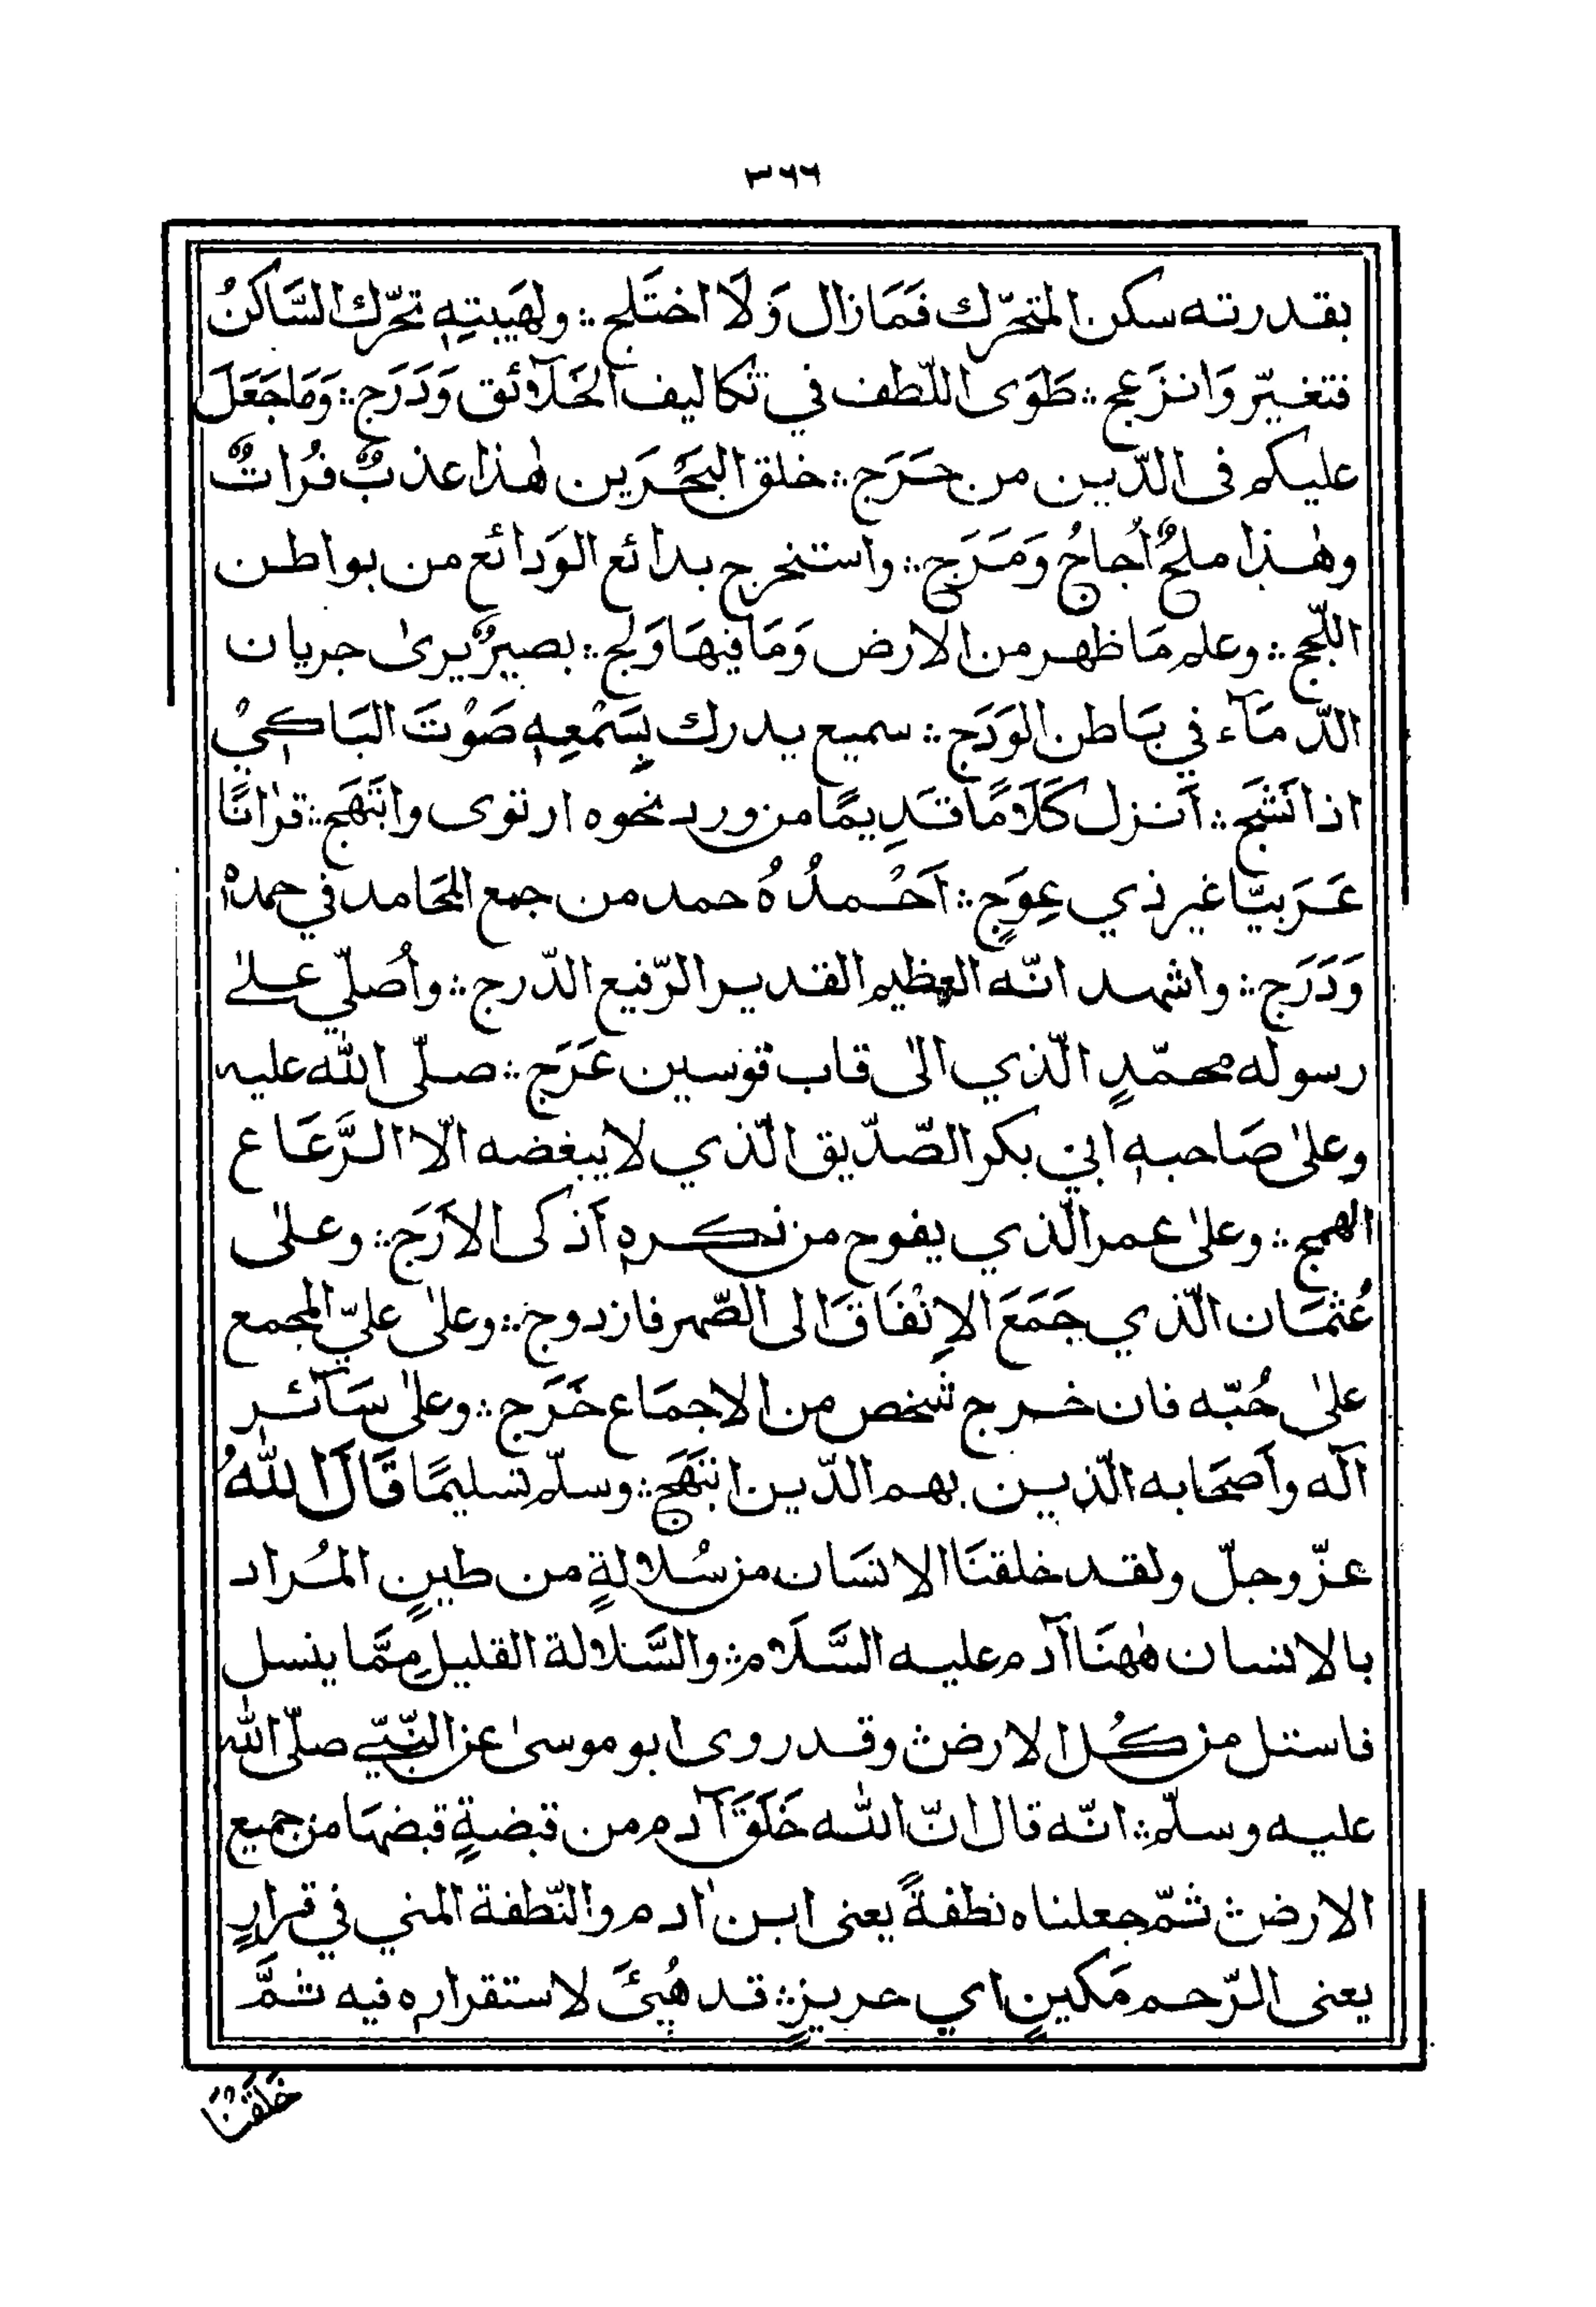 ٣٦٦
بقدرته سكن المتحرّك فَمَا زال وَلَا اختَلج ؞ ولهَيبتِهٖ تحرّك السَّاكنُ
فتغيّر وَانزَعج ؞ طَوَى اللّطف في تكاليف الخَلَآئق وَدَرَج ؞ وَمَا جَعَلَ
عليكم فى الدّين من حَرَج ؞ خلق البَحْرَين هٰذا عذبٌ فُراتٌ
وهٰذا ملحٌ اُجاجُ وَمَرَج ؞ واستخرج بدائع الوَدائع من بواطن
اللّجج ؞ وعلم مَا ظهر من الارض وَمَا فيهَا وَلج ؞ بصيرٌ يرىٰ جريان
الدّمَآء في بَاطن الوَدَج ؞ سميع يدرك بِسَمْعِهٖ صَوْتَ البَاكِيْ
اذا نَشَج ؞ اَنزل كَلَامًا قَدِيمًا من ورد نحوه ارتوى وابتَهَج ؞ قراٰنًا
عَرَبيًّا غير ذي عِوَجٍ ؞ اَحْمدُهُ حمد من جمع المحَامد في حمدهٖ
وَدَرَج ؞ واشهد انّه العظيم القدير الرّفيع الدّرج ؞ واُصلّي علىٰ
رسوله محمّدٍ الّذي الىٰ قاب قوسين عَرَج ؞ صلّى الله عليه
وعلىٰ صَاحبهٖ ابي بكر الصّدّيق الّذي لا يبغضه الّا الرَّعَاع
الهمج ؞ وعلىٰ عمر الّذي يفوح من ذكرهٖ اَذكى الاَرَج ؞ وعلىٰ
عُثمَان الّذي جَمَعَ الاِنْفَاقَ الى الصّهر فازدوج ؞ وعلىٰ عليّ المجمع
علىٰ حُبّه فان خرج شخص من الاجمَاع خَرَج ؞ وعلىٰ سَآئر
آله واَصحَابه الّذين بهم الدّين انتَهَج ؞ وسلّم تسليمًا قَالَ اللهُ
عزّ وجلّ ولقد خلقنَا الانسَان من سُلالةٍ من طينٍ المُراد
بالانسان هٰهنَا آدم عليه السَّلَام ؞ والسَّلالة القليل مِمَّا ينسل
فاستل من كُل الارض ؞ وقد روى ابو موسىٰ عن النّبيّ صلّى الله
عليه وسلّم ؞ انّه قال انّ الله خَلَقَ آدم من قبضةٍ قبضهَا من جميع
الارض ؞ ثمّ جعلناه نطفةً يعنى ابن اٰدم والنّطفة المني في قرارٍ
يعنى الرّحم مَكينٍ اي حريزٍ ؞ قد هُيئَ لاستقراره فيه ثمَّ
خَلَقْنَا